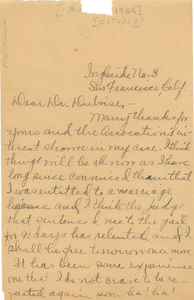 [1925]
[October]
Ingleside No. 3
San Francisco, Calif
Dear Dr. Duboise,-
Many thanks for
yours and the Association's in-
terest shown in my case. I think
things will be ok now as I have
long since convinced them that
I was entitled to a marriage
license and I think the judge
that sentenced me to the jail
for 90 days has relented and I
shall be free tomorrow once more
It has been some experience
one that I do not crave to be re-
peated again soon. be that